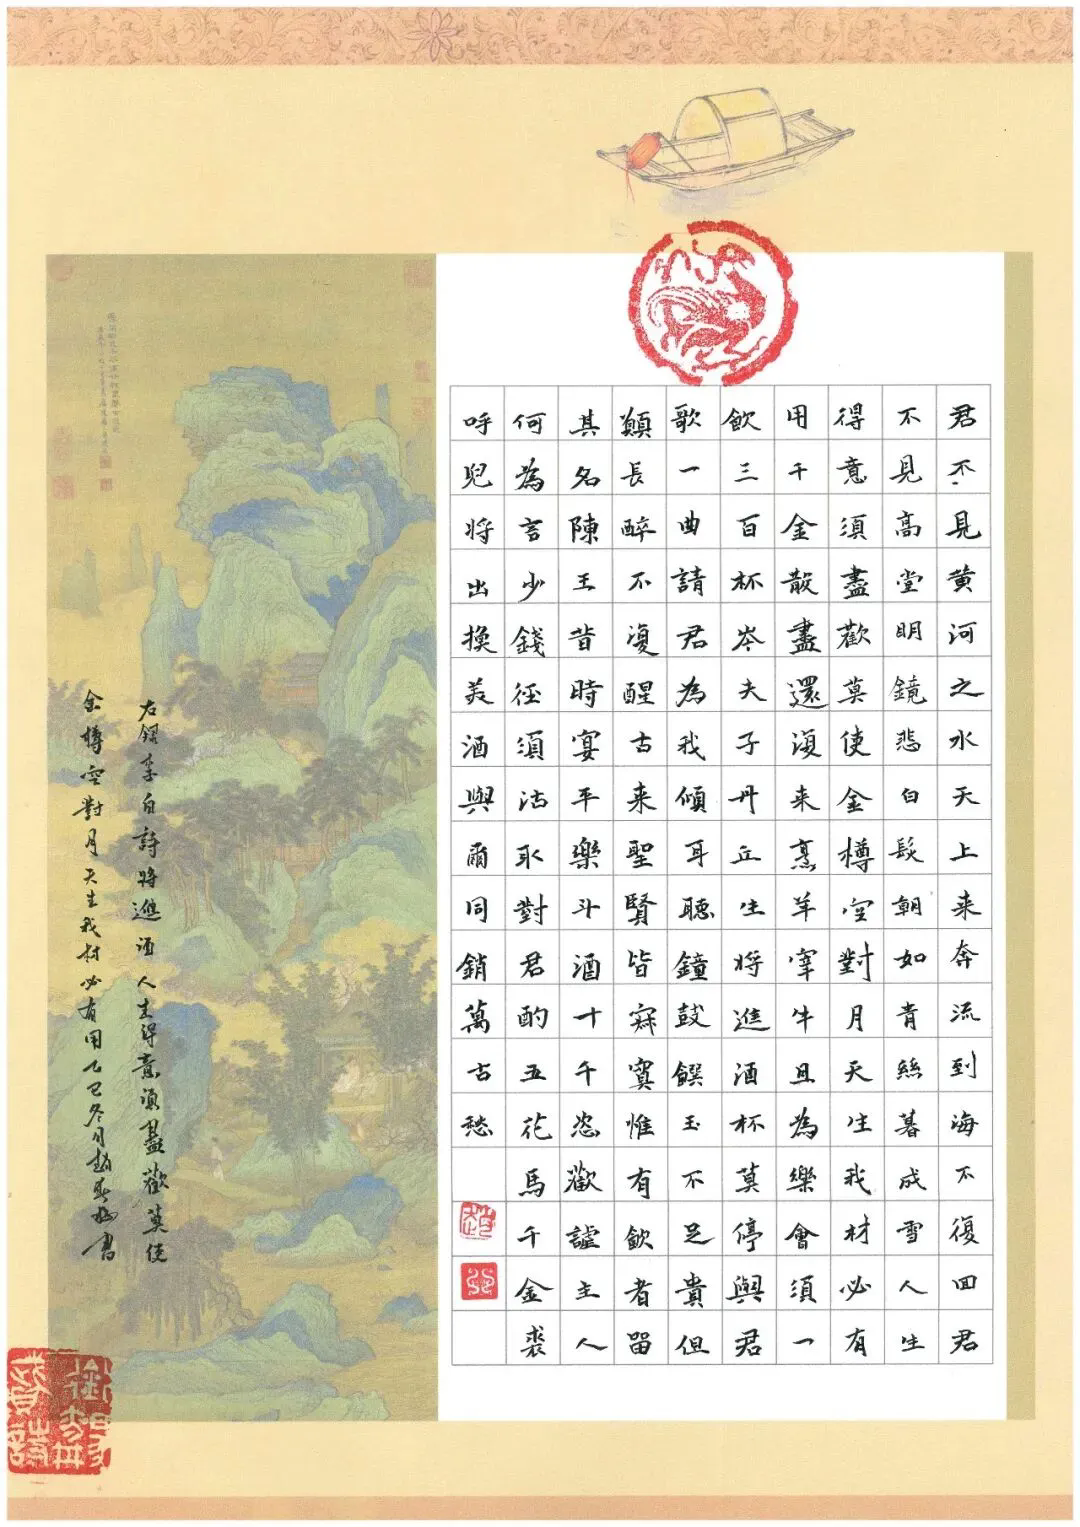 君不見黄河之水天上来奔流到海不復囬君
不見高堂明鏡悲白髮朝如青絲暮成雪人生
得意須盡歡莫使金樽空對月天生我材必有
用千金散盡還復来烹羊宰牛且為樂會須一
飲三百杯岑夫子丹丘生将進酒杯莫停與君
歌一曲請君為我傾耳聽鐘鼓饌玉不足貴但
願長醉不復醒古来聖賢皆寂寞惟有飲者留
其名陳王昔時宴平樂斗酒十千恣歡謔主人
何為言少錢徑須沽取對君酌五花馬千金裘
呼兒将出換美酒與爾同銷萬古愁
右錄李白詩将進酒人生得意須盡歡莫使
金樽空對月天生我材必有用乙巳冬月趙書